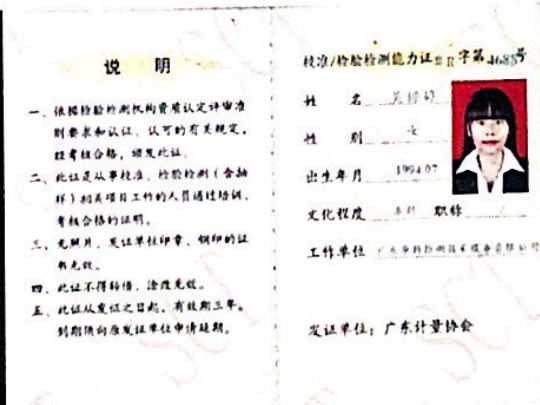 说 明
一、依据检验检测机构资质认定评审准
则要求和认证、认可的有关规定，
经考核合格，颁发此证。
二、此证是从事校准、检验检测（含抽
样）相关项目工作的人员通过培训、
考核合格的证明。
三、无照片、发证单位印章、钢印的证
书无效。
四、此证不得转借、涂改无效。
五、此证从发证之日起，有效期三年。
到期须向原发证单位申请延期。
校准/检验检测能力证 字第 4688号
姓 名
性 别 女
出生年月 1994.07
文化程度 本科 职称 /
工作单位 广东 检测技术服务有限公司
发证单位：广东计量协会